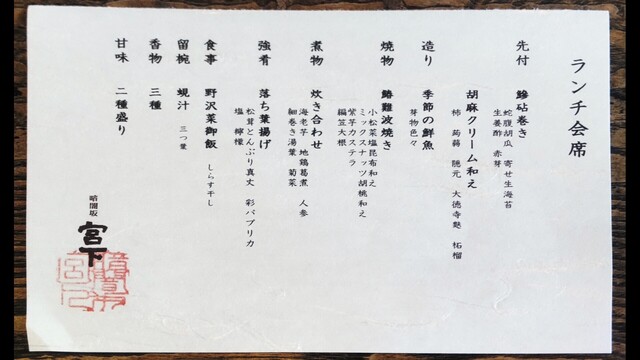 ランチ会席
先付 鰺砧巻き
蛇腹胡瓜 寄せ生海苔
生姜酢 赤芽
胡麻クリーム和え
柿 蒟蒻 隠元 大徳寺麩 柘榴
造り 季節の鮮魚
芽物色々
焼物 鰆難波焼き
小松菜塩昆布和え
ミックスナッツ胡桃和え
紫芋カステラ
編笠大根
煮物 炊き合わせ
海老芋 地鶏葛煮 人参
細巻き湯葉 菊菜
強肴 落ち葉揚げ
松茸とんぶり真丈 彩パプリカ
塩 檸檬
食事 野沢菜御飯 しらす干し
留椀 蜆汁 三つ葉
香物 三種
甘味 二種盛り
暗闇坂
宮下